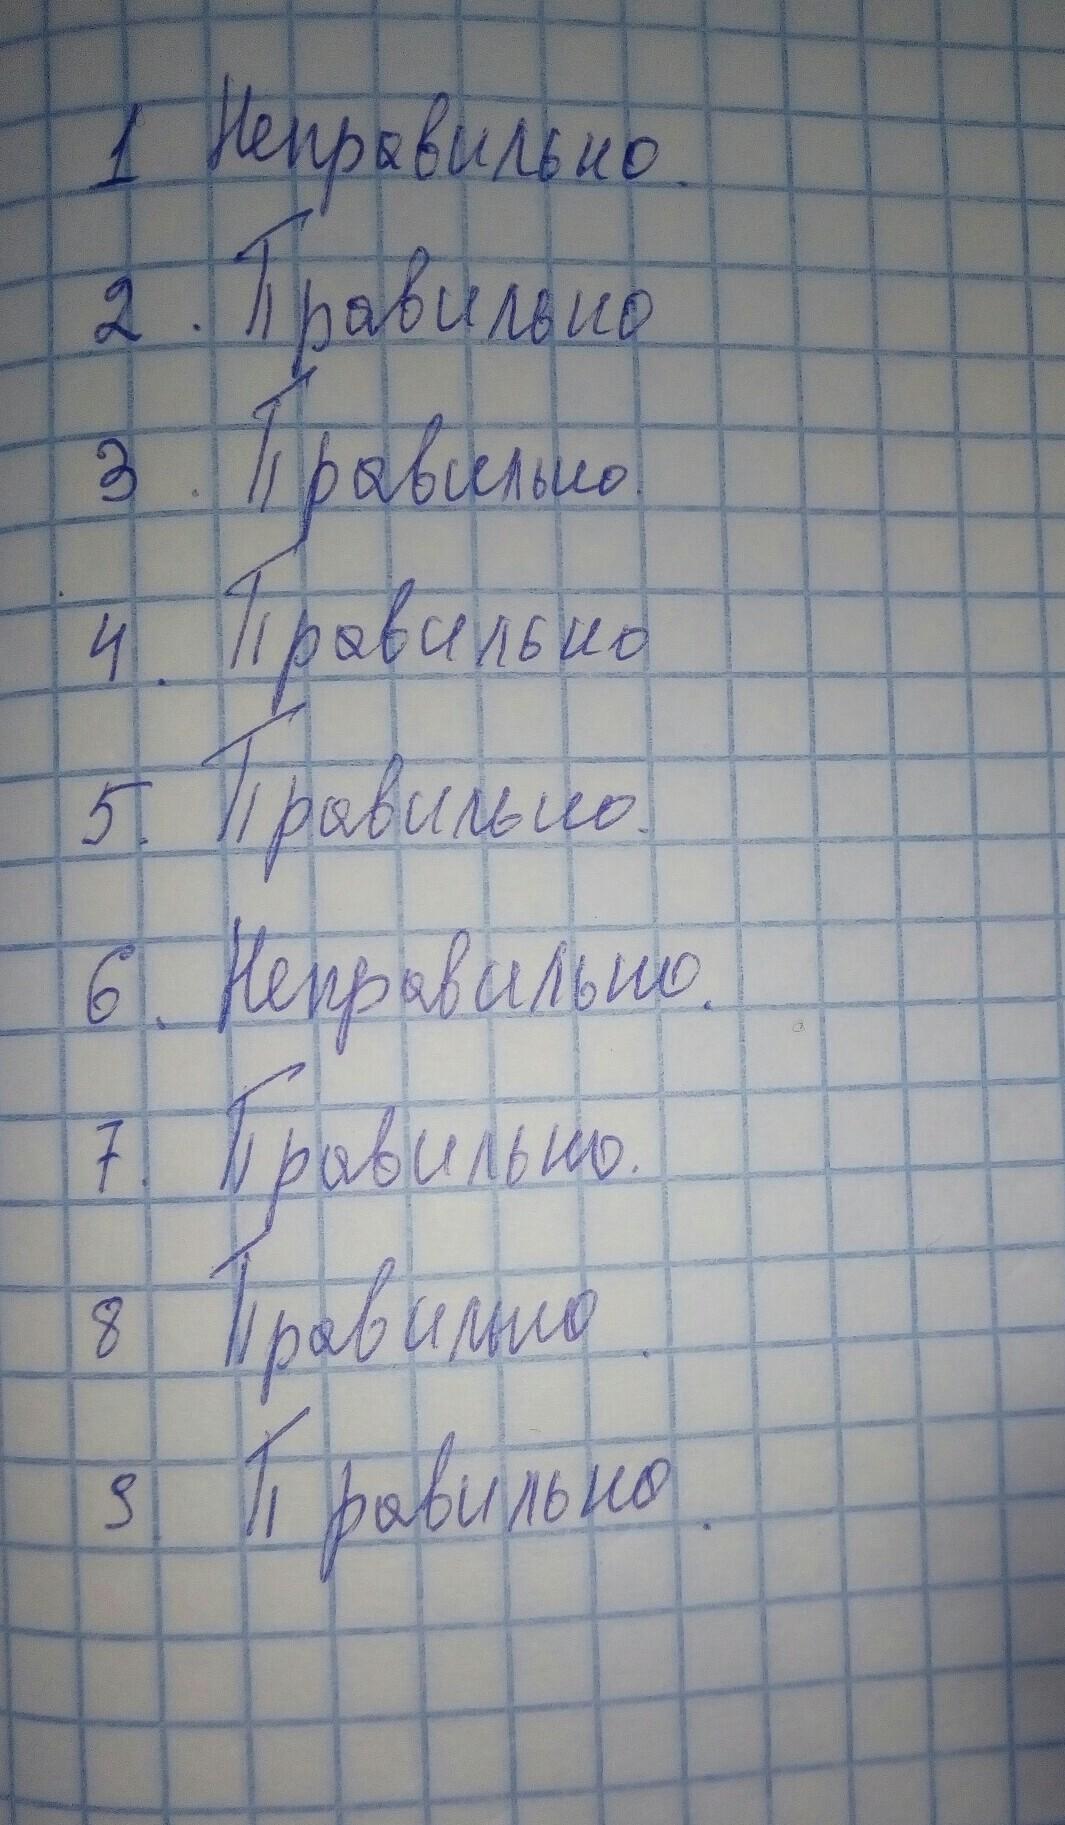 1 Неправильно.
2. Правильно
3. Правильно.
4. Правильно
5. Правильно.
6. Неправильно.
7. Правильно.
8 Правильно.
9. Правильно.